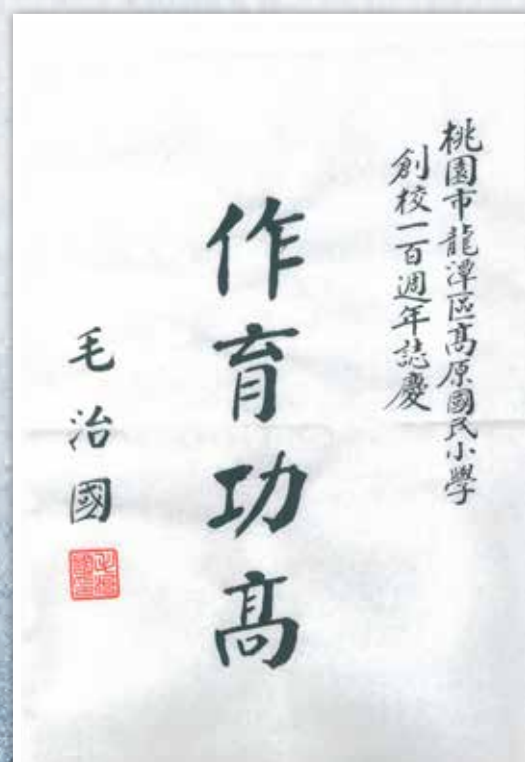 桃園市龍潭區高原國民小學
創校一百週年誌慶
作育功高
毛治國